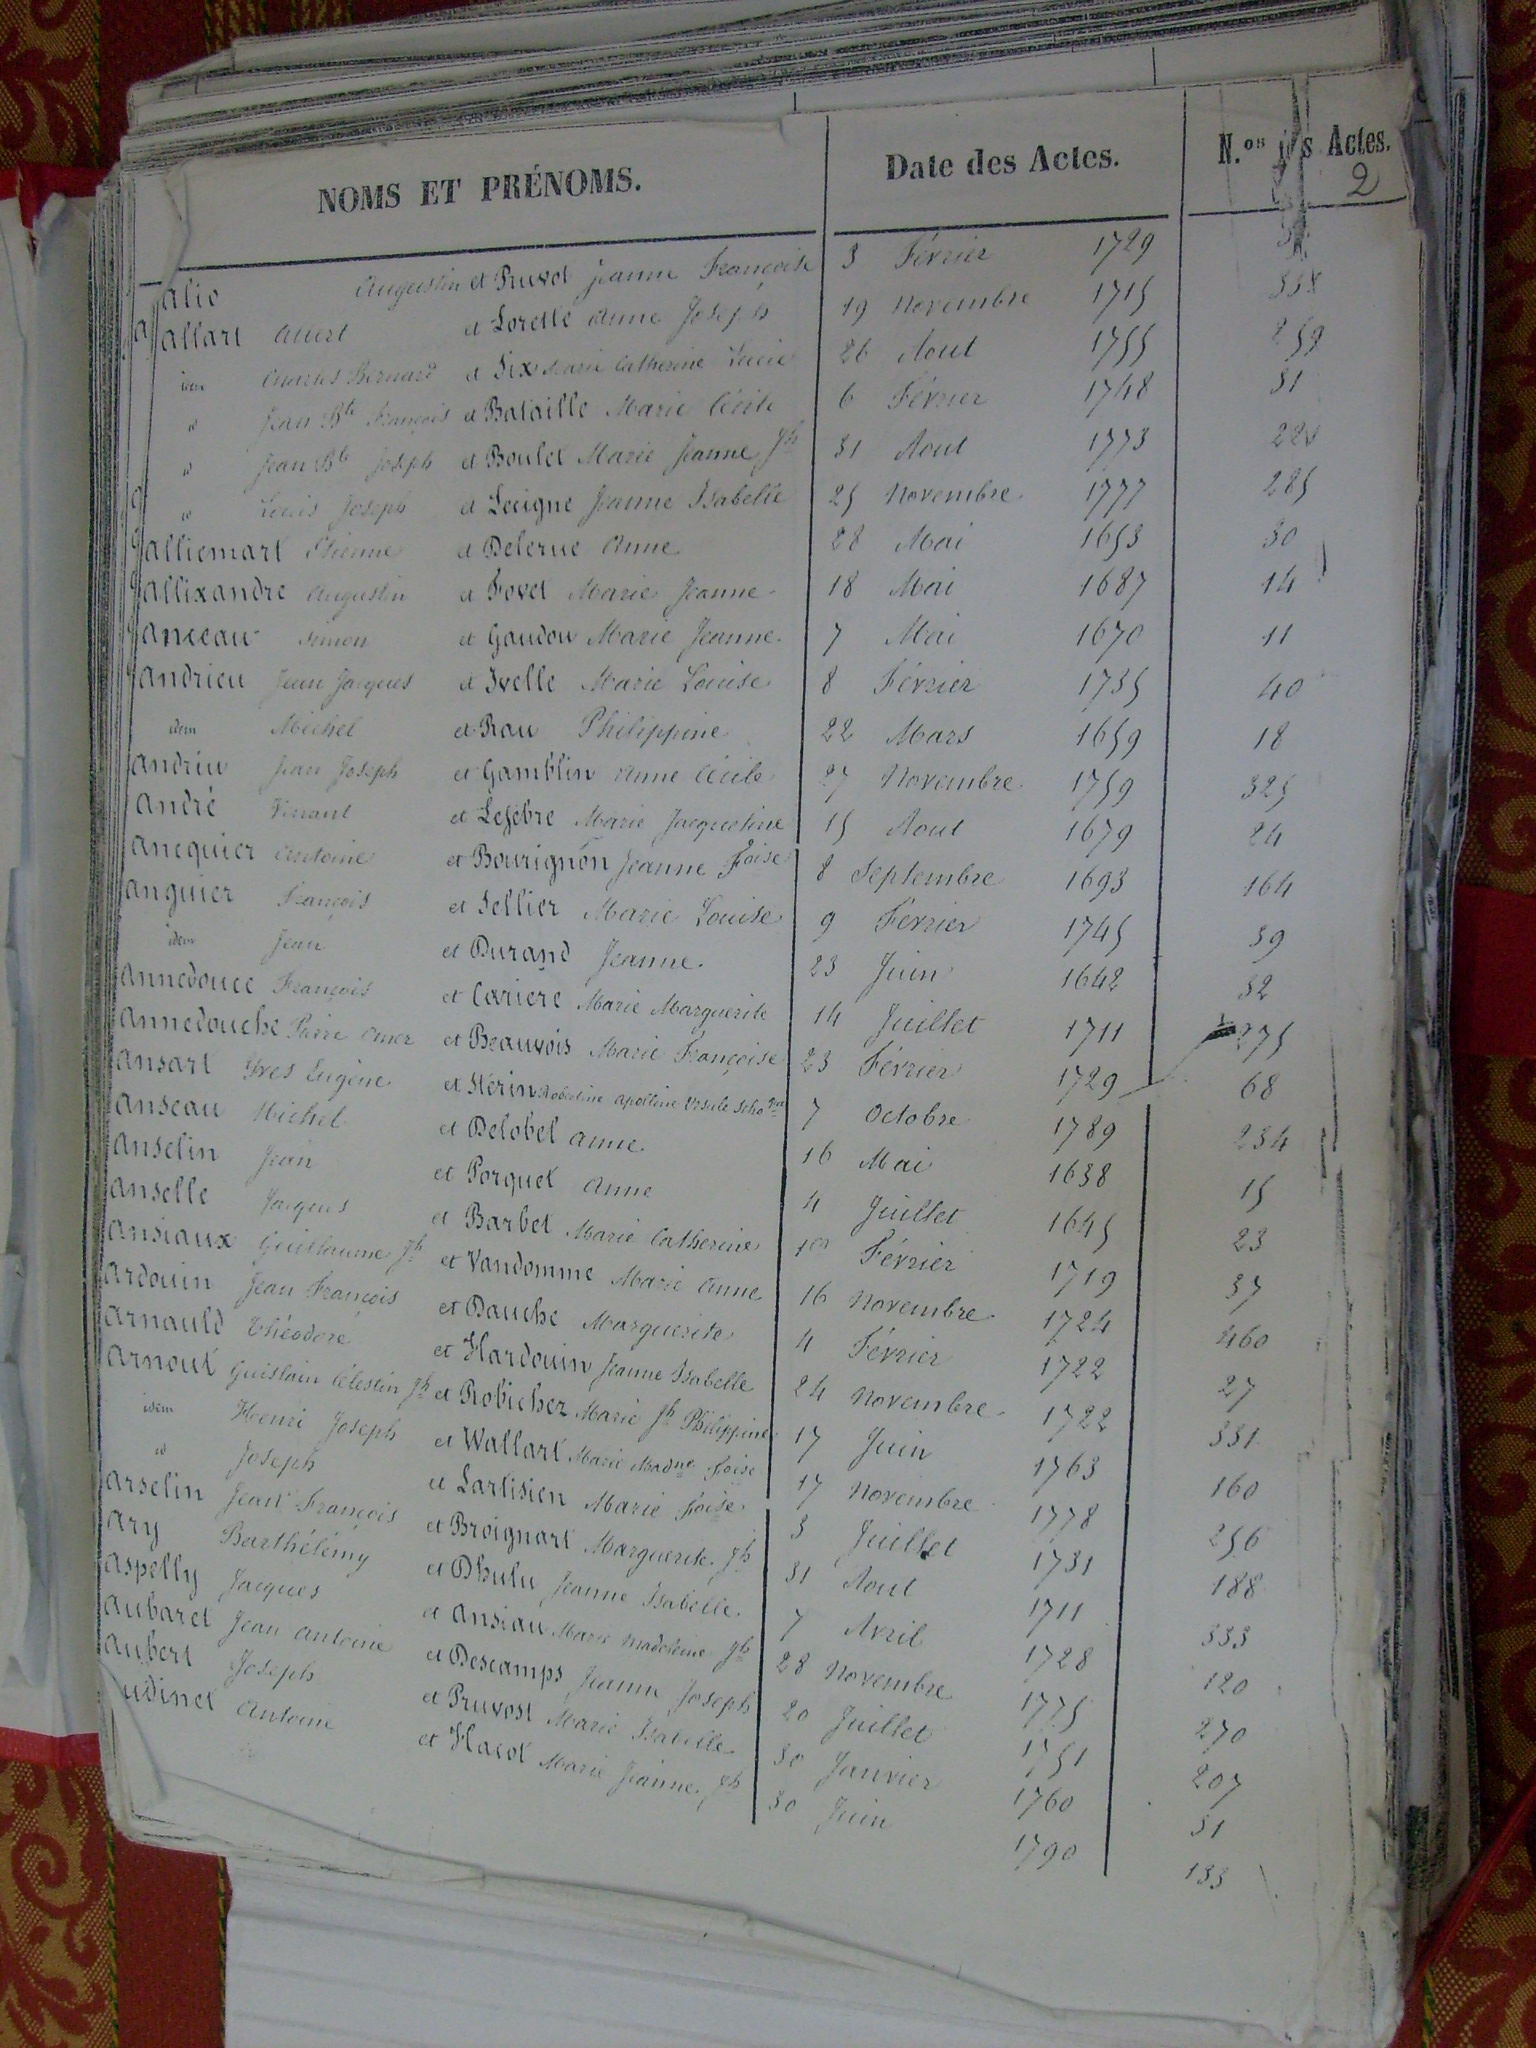 NOMS ET PRÉNOMS. Date des Actes. N.os des Actes.
2
Alio Augustin et Pruvot Jeanne Françoise 3 Février 1729
Allart Albert et Lorette Anne Joseph 19 Novembre 1715 338
idem Charles Bernard et Six Marie Catherine Lucie 26 Aout 1755 259
id Jean Bte François et Bataille Marie Cécile 6 Février 1748 31
id Jean Bte Joseph et Boulet Marie Jeanne Jh 31 Aout 1773
id Louis Joseph et Lecigne Jeanne Isabelle 25 Novembre 1777 285
Alliemart Etienne et Delerue Anne 28 Mai 1653 30
Allixandre Augustin et Fovet Marie Jeanne 18 Mai 1687 14
Anceau Simon et Gaudou Marie Jeanne 7 Mai 1670 11
Andrieu Jean Jacques et Ivelle Marie Louise 8 Février 1735 40
idem Michel et Rau Philippine 22 Mars 1659 18
Andriu Jean Joseph et Gamblin Anne Cécile 27 Novembre 1759 325
André Vinant et Lefebre Marie Jacqueline 15 Aout 1679 24
Anequier Antoine et Bourignon Jeanne Foise 8 Septembre 1693 164
Anguier François et Sellier Marie Louise 9 Février 1745 39
idem Jean et Durand Jeanne 23 Juin 1642 32
Annedouce François et Cariere Marie Marguerite 14 Juillet 1711 275
Annedouche Pierre Omer et Beauvois Marie Françoise 23 Février 1729 68
Ansart Yves Eugène et Hérin Robertine Apolline Ursule 7 Octobre 1789 234
Anseau Michel et Delobel Anne 16 Mai 1638 15
Anselin Jean et Porquet Anne 4 Juillet 1645 23
Anselle Jacques et Barbet Marie Catherine 1er Février 1719 37
Ansiaux Guillaume Jh et Vandomme Marie Anne 16 Novembre 1724 460
Ardouin Jean François et Dauche Marguerite 4 Février 1722 27
Arnauld Théodore et Hardouin Jeanne Isabelle 24 Novembre 1722 331
Arnout Guislain Célestin Jh et Robichez Marie Jh Philippine 17 Juin 1763 160
idem Henri Joseph et Wallart Marie Madne Foise 17 Novembre 1778 256
id Joseph et Lartisien Marie Foise 3 Juillet 1731 188
Arselin Jean François et Broignart Marguerite Jh 31 Aout 1711 333
Ary Barthélémy et Dhulu Jeanne Isabelle 7 Avril 1728 120
Aspelly Jacques et Ansiau Marie Madeleine Jh 28 Novembre 1775 270
Aubaret Jean Antoine et Descamps Jeanne Joseph 20 Juillet 1751 207
Aubert Joseph et Pruvost Marie Isabelle 30 Janvier 1760 31
udinet Antoine et Hacot Marie Jeanne Jh 30 Juin 1790 133